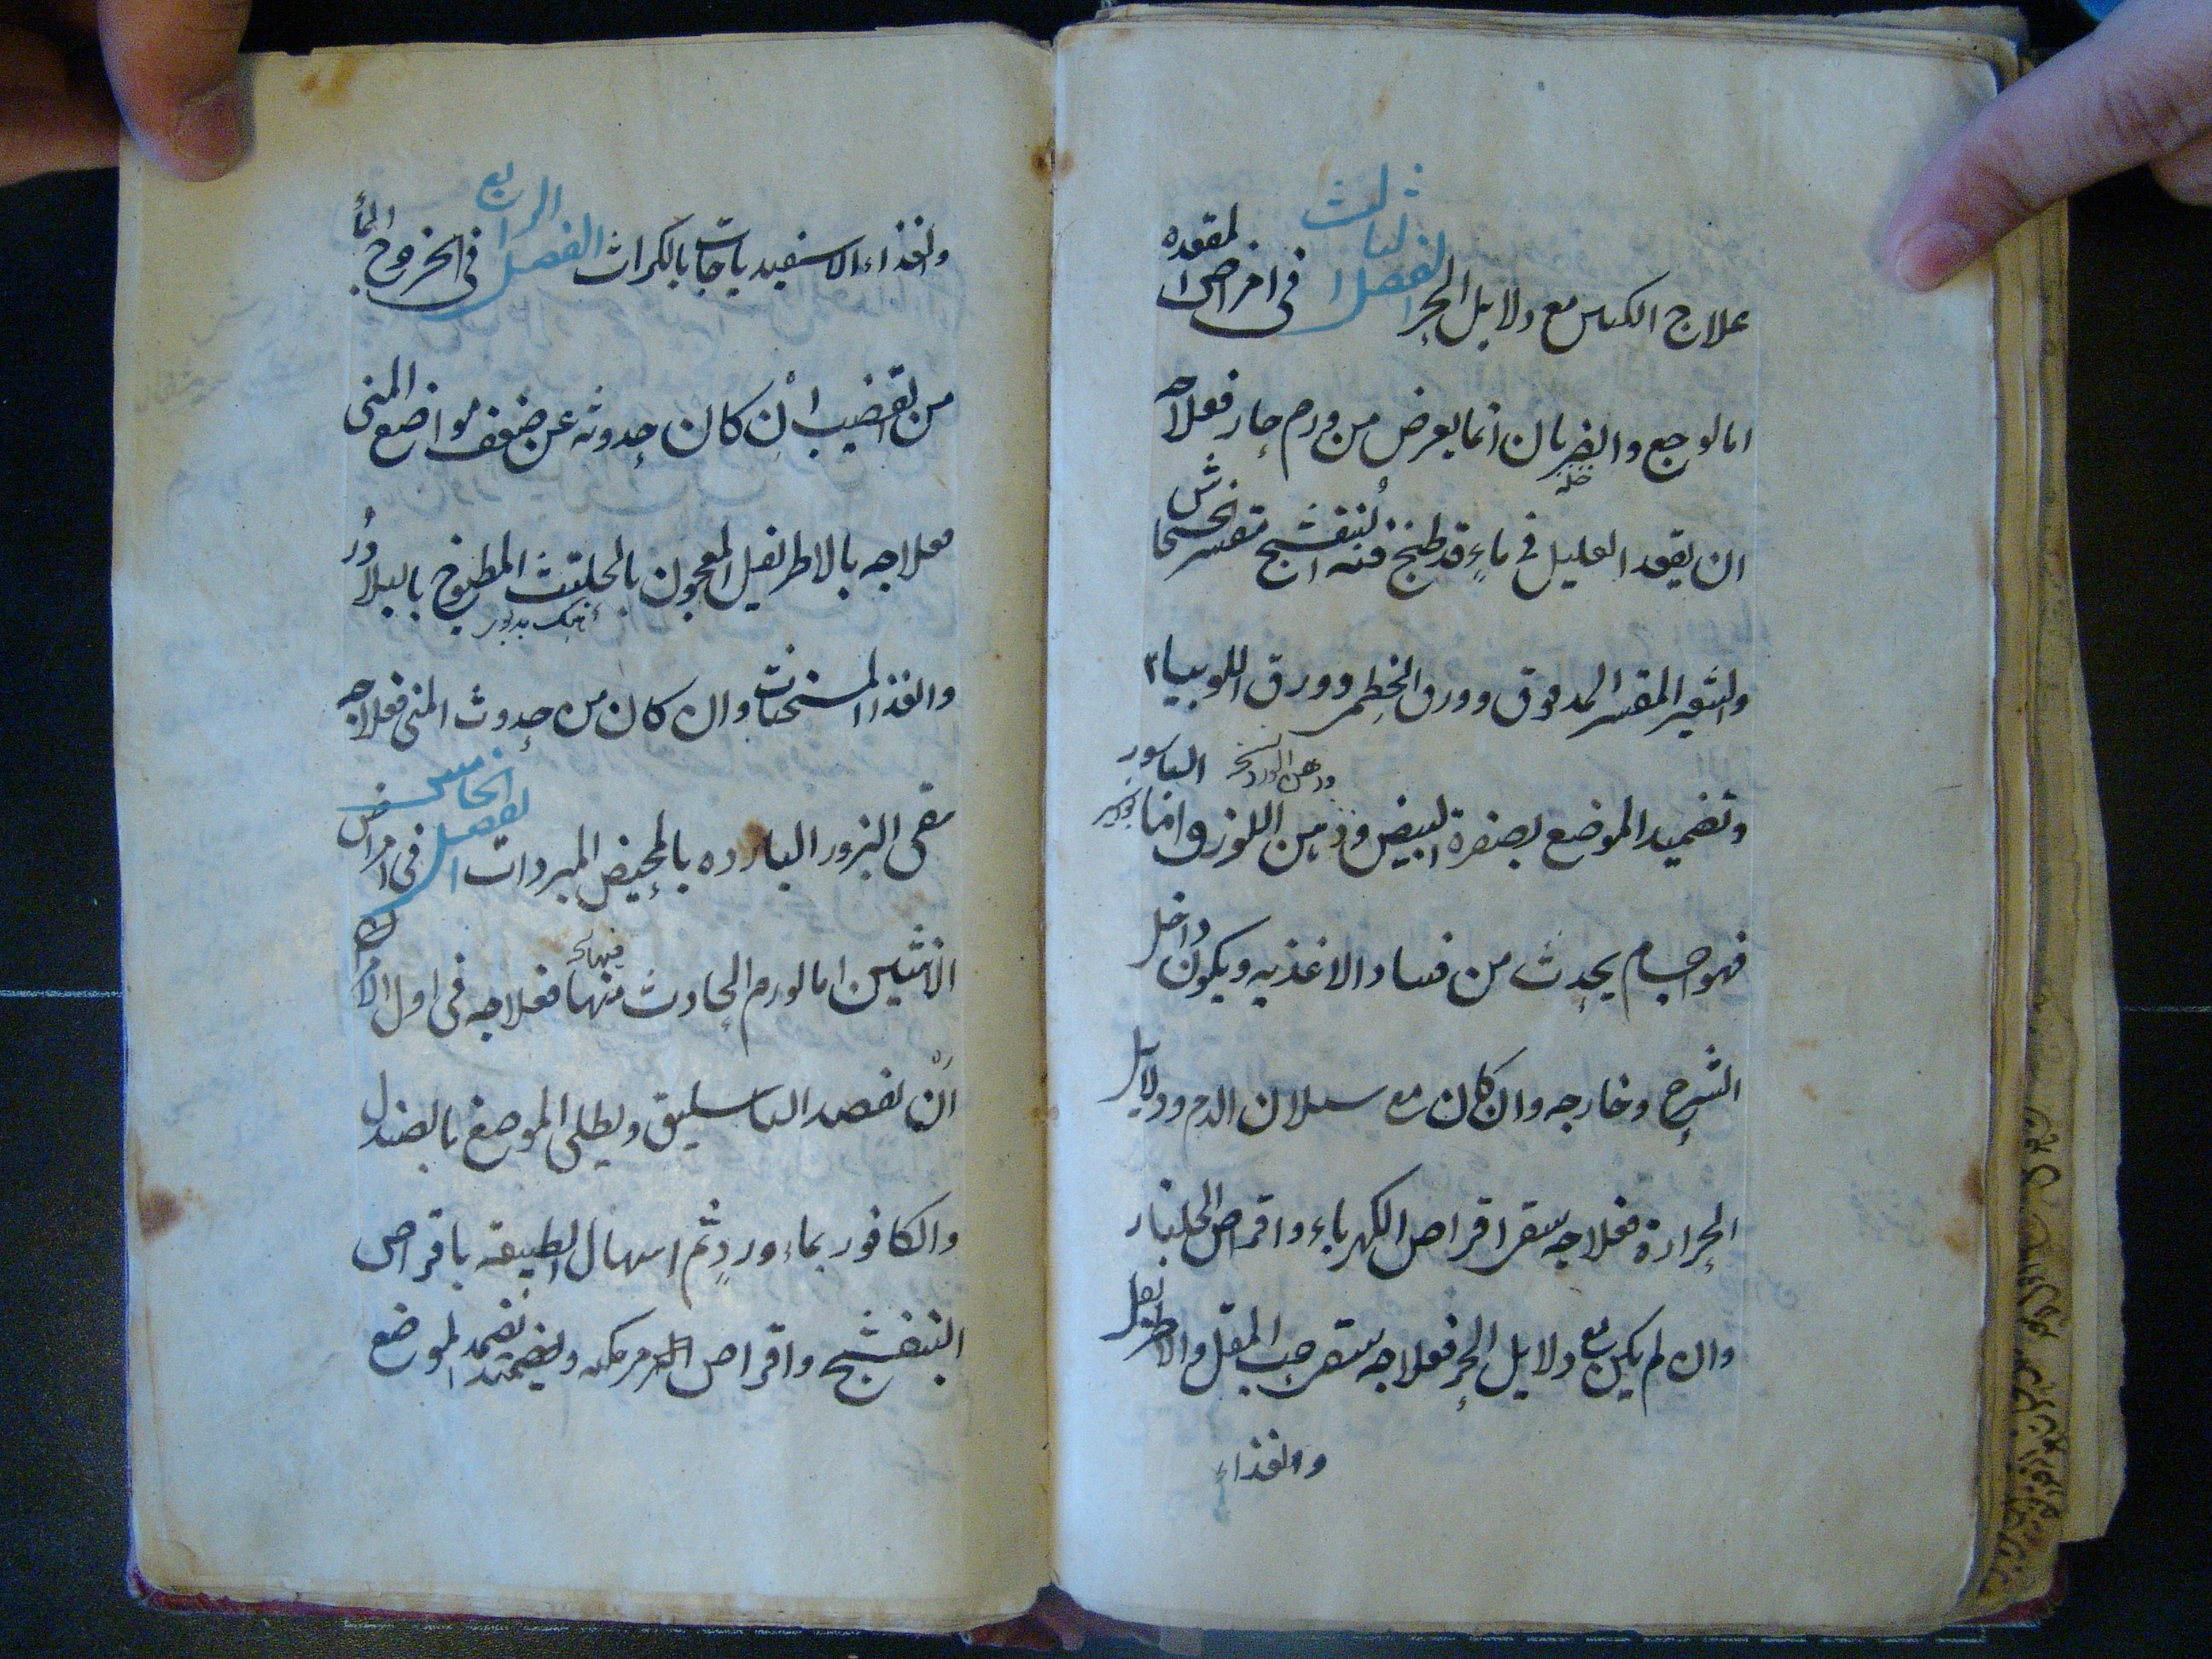 علاج الكلس مع دلايل الحر الفصل الثالث فى امراض المقعده
اما لوجع والضربان انما يعرض من ورم حار فعلاجه
ان يقعد العليل فى ماء قد طبخ فيه البنفشج
والشعير المقشر المدقوق وورق الخطمى وورق اللوبيا
وتضميد الموضع بصفرة البيض ودهن اللوز واما الباسور
ودهن الورد
فهو اجسام يحدث من فساد الاغذيه ويكون داخل
الشرح وخارجه وان كان مع سيلان الدم ودلايل
الحرارة فعلاجه سقى اقراص الكهرباء واقراص الجلنار
وان لم يكن مع دلايل الحر فعلاجه سقى حب المقل والاطريفل
والغذاء
والغذاء الاسفيدباجات بالكراث الفصل الرابع فى الخروج
من القضيب ان كان حدوثه عن ضعف مواضع المنى
فعلاجه بالاطريفل المعجون بالحلتيت المطبوخ بالبلادر
والغذا المسخنات وان كان من حدوث المنى فعلاجه
سقى البزور البارده بالمحيض المبردات الفصل الخامس فى امراض
الانثيين اما لورم الحادث منها فعلاجه فى اول الامر
ان يفصد الباسليق ويطلى الموضع بالصندل
والكافور بماء ورد ثم اسهال الطبيعه باقراص
البنفشج واقراص ويضمد الموضع